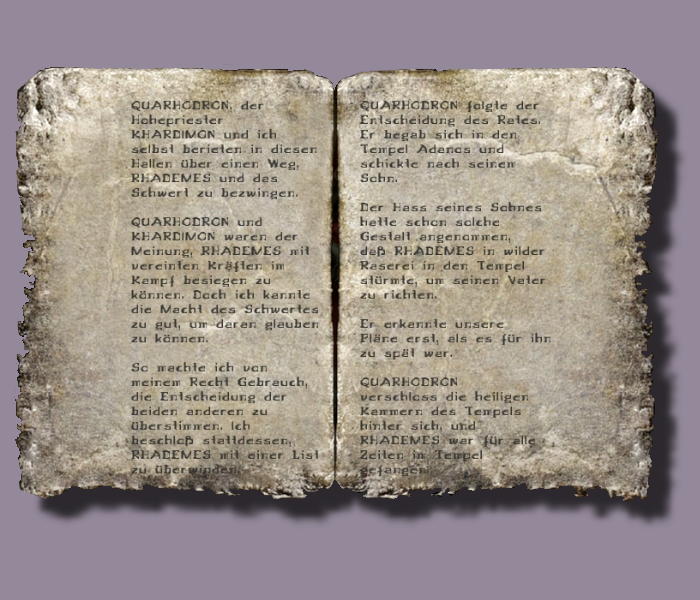 QUARHODRON, der
Hohepriester
KHARDIMON und ich
selbst berieten in diesen
Hallen über einen Weg,
RHADEMES und das
Schwert zu bezwingen.
QUARHODRON und
KHARDIMON waren der
Meinung, RHADEMES mit
vereinten Kräften im
Kampf besiegen zu
können. Doch ich kannte
die Macht des Schwertes
zu gut, um daran glauben
zu können.
So machte ich von
meinem Recht Gebrauch,
die Entscheidung der
beiden anderen zu
überstimmen. Ich
beschloß stattdessen,
RHADEMES mit einer List
zu überwinden.
QUARHODRON folgte der
Entscheidung des Rates.
Er begab sich in den
Tempel Adanos und
schickte nach seinem
Sohn.
Der Hass seines Sohnes
hatte schon solche
Gestalt angenommen,
daß RHADEMES in wilder
Raserei in den Tempel
stürmte, um seinen Vater
zu richten.
Er erkannte unsere
Pläne erst, als es für ihn
zu spät war.
QUARHODRON
verschloss die heiligen
Kammern des Tempels
hinter sich, und
RHADEMES war für alle
Zeiten im Tempel
gefangen.